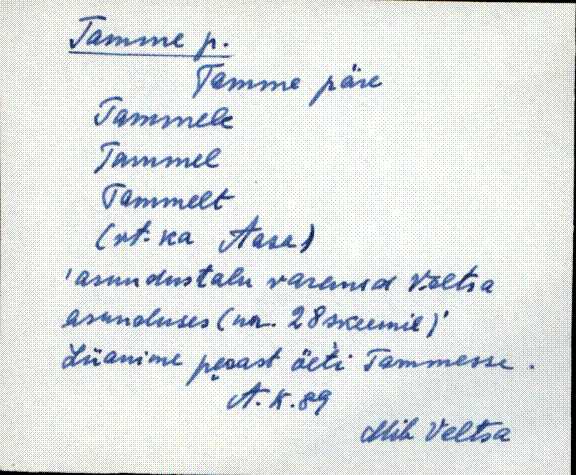 Tamme p.
Tamme päre
Tammele
Tammel
Tammelt
(vt. ka Aasa)
'asundustalu varemid Veltsa
asunduses (nr. 28 skeemil)'
Lüanime peast öeti Tammesse.
A. K. 89
Mih Veltsa